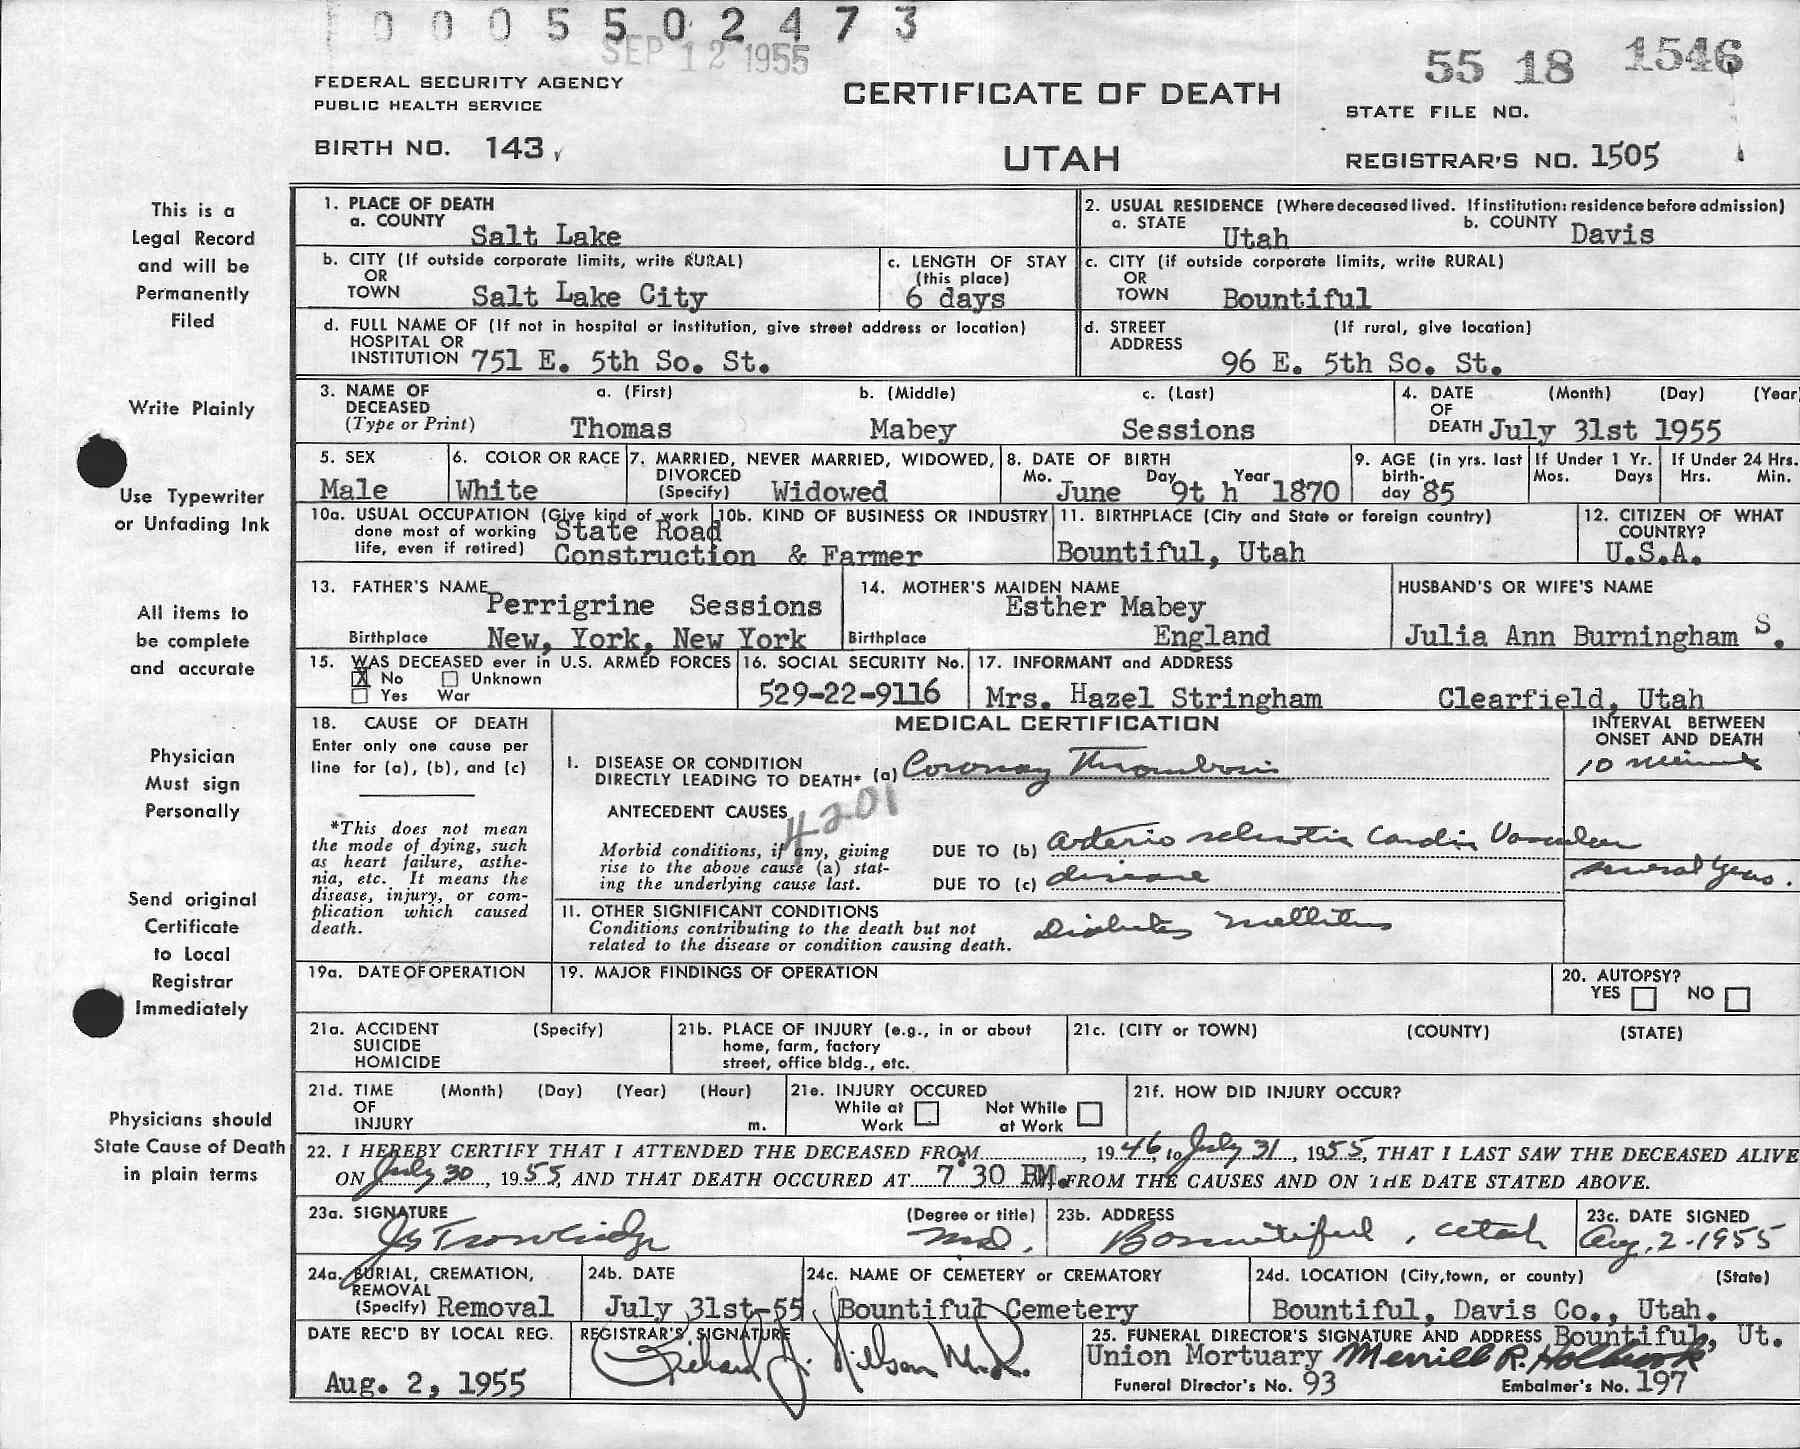 0005502473
SEP 12 1955
55 18 1546
FEDERAL SECURITY AGENCY
PUBLIC HEALTH SERVICE
CERTIFICATE OF DEATH
STATE FILE NO.
BIRTH NO. 143
UTAH
REGISTRAR'S NO. 1505
This is a
Legal Record
and will be
Permanently
Filed
Write Plainly
Use Typewriter
or Unfading Ink
All items to
be complete
and accurate
Physician
Must sign
Personally
Send original
Certificate
to Local
Registrar
Immediately
Physicians should
State Cause of Death
in plain terms
1. PLACE OF DEATH
a. COUNTY Salt Lake
2. USUAL RESIDENCE (Where deceased lived. If institution: residence before admission)
a. STATE Utah b. COUNTY Davis
b. CITY (If outside corporate limits, write RURAL)
OR
TOWN Salt Lake City
c. LENGTH OF STAY
(this place)
6 days
c. CITY (if outside corporate limits, write RURAL)
OR
TOWN Bountiful
d. FULL NAME OF (If not in hospital or institution, give street address or location)
HOSPITAL OR
INSTITUTION 751 E. 5th So. St.
d. STREET (If rural, give location)
ADDRESS
96 E. 5th So. St.
3. NAME OF a. (First) b. (Middle) c. (Last)
DECEASED
(Type or Print) Thomas Mabey Sessions
4. DATE (Month) (Day) (Year
OF
DEATH July 31st 1955
5. SEX
Male
6. COLOR OR RACE
White
7. MARRIED, NEVER MARRIED, WIDOWED,
DIVORCED
(Specify) Widowed
8. DATE OF BIRTH
Mo. Day Year
June 9t h 1870
9. AGE (in yrs. last
birth-
day 85
If Under 1 Yr.
Mos. Days
If Under 24 Hrs.
Hrs. Min.
10a. USUAL OCCUPATION (Give kind of work
done most of working
life, even if retired)
State Road
Construction & Farmer
10b. KIND OF BUSINESS OR INDUSTRY
11. BIRTHPLACE (City and State or foreign country)
Bountiful, Utah
12. CITIZEN OF WHAT
COUNTRY?
U.S.A.
13. FATHER'S NAME
Perrigrine Sessions
Birthplace New, York, New York
14. MOTHER'S MAIDEN NAME
Esther Mabey
Birthplace England
HUSBAND'S OR WIFE'S NAME
Julia Ann Burningham S.
15. WAS DECEASED ever in U.S. ARMED FORCES
X No Unknown
Yes War
16. SOCIAL SECURITY No.
529-22-9116
17. INFORMANT and ADDRESS
Mrs. Hazel Stringham Clearfield, Utah
18. CAUSE OF DEATH
Enter only one cause per
line for (a), (b), and (c)
*This does not mean
the mode of dying, such
as heart failure, asthe-
nia, etc. It means the
disease, injury, or com-
plication which caused
death.
MEDICAL CERTIFICATION
INTERVAL BETWEEN
ONSET AND DEATH
I. DISEASE OR CONDITION
DIRECTLY LEADING TO DEATH* (a) Coronay Thrombosis 10 minutes
ANTECEDENT CAUSES
4201
Morbid conditions, if any, giving
rise to the above cause (a) stat-
ing the underlying cause last.
DUE TO (b) arterio sclerotic Cardio Vascular
DUE TO (c) disease several years.
II. OTHER SIGNIFICANT CONDITIONS
Conditions contributing to the death but not
related to the disease or condition causing death.
Diabetes mellitus
19a. DATE OF OPERATION
19. MAJOR FINDINGS OF OPERATION
20. AUTOPSY?
YES NO
21a. ACCIDENT (Specify)
SUICIDE
HOMICIDE
21b. PLACE OF INJURY (e.g., in or about
home, farm, factory
street, office bldg., etc.
21c. (CITY or TOWN) (COUNTY) (STATE)
21d. TIME (Month) (Day) (Year) (Hour)
OF
INJURY m.
21e. INJURY OCCURED
While at Work
Not While at Work
21f. HOW DID INJURY OCCUR?
22. I HEREBY CERTIFY THAT I ATTENDED THE DECEASED FROM, 1946, to July 31, 1955, THAT I LAST SAW THE DECEASED ALIVE
ON July 30, 1955, AND THAT DEATH OCCURED AT 7:30 PM. FROM THE CAUSES AND ON THE DATE STATED ABOVE.
23a. SIGNATURE (Degree or title)
JS Trowbridge M.D.
23b. ADDRESS
Bountiful, Utah
23c. DATE SIGNED
Aug. 2-1955
24a. BURIAL, CREMATION,
REMOVAL
(Specify) Removal
24b. DATE
July 31st-55
24c. NAME OF CEMETERY or CREMATORY
Bountiful Cemetery
24d. LOCATION (City,town, or county) (State)
Bountiful, Davis Co., Utah.
DATE REC'D BY LOCAL REG.
Aug. 2, 1955
REGISTRAR'S SIGNATURE
Richard J. Nilson M.D.
25. FUNERAL DIRECTOR'S SIGNATURE AND ADDRESS Bountiful, Ut.
Union Mortuary Merrill R. Holbrook
Funeral Director's No. 93 Embalmer's No. 197